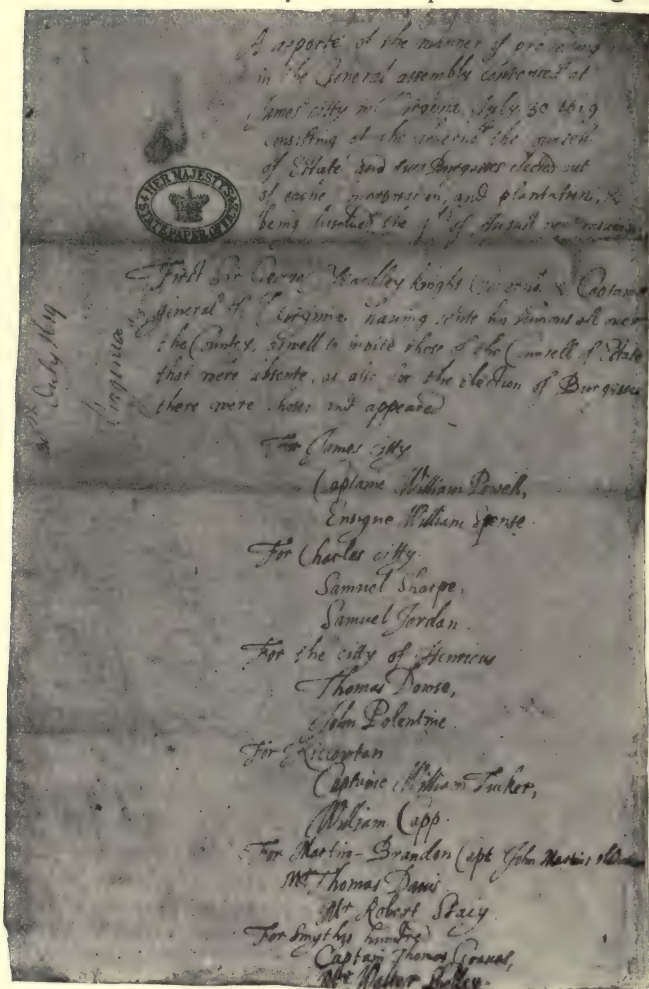 A reporte of the manner of proceeding
in the General assembly convented at
James citty in Virginia, July 30 1619
consisting of the Governor, the Counsell
of Estate and two Burgesses elected out
of eache Incorporation, and plantation, &
being dissolved the 4th of August next
First Sir George Yeardley Knight Governor & Captaine
General of Virginia, having sente his sumons all over
the Country, aswell to invite those of the Counsell of Estate
that were absente, as also for the election of Burgesses
there were chosen and appeared
For James citty
Captaine William Powell,
Ensigne William Spense.
For Charles citty
Samuel Sharpe,
Samuel Jordan.
For the citty of Henricus
Thomas Dowse,
John Polentine.
For Kiccowtan
Captaine William Tucker,
William Capp.
For Martin-Brandon Capt John Martins
Mr Thomas Davis
Mr Robert Stacy.
For Smythes hundred
Captain Thomas Graves,
Mr Walter Shelley.
HER MAJESTY'S
STATE PAPER OFFICE
July 1619
Virginia